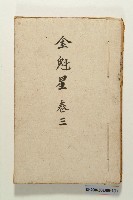 金魁星 卷三